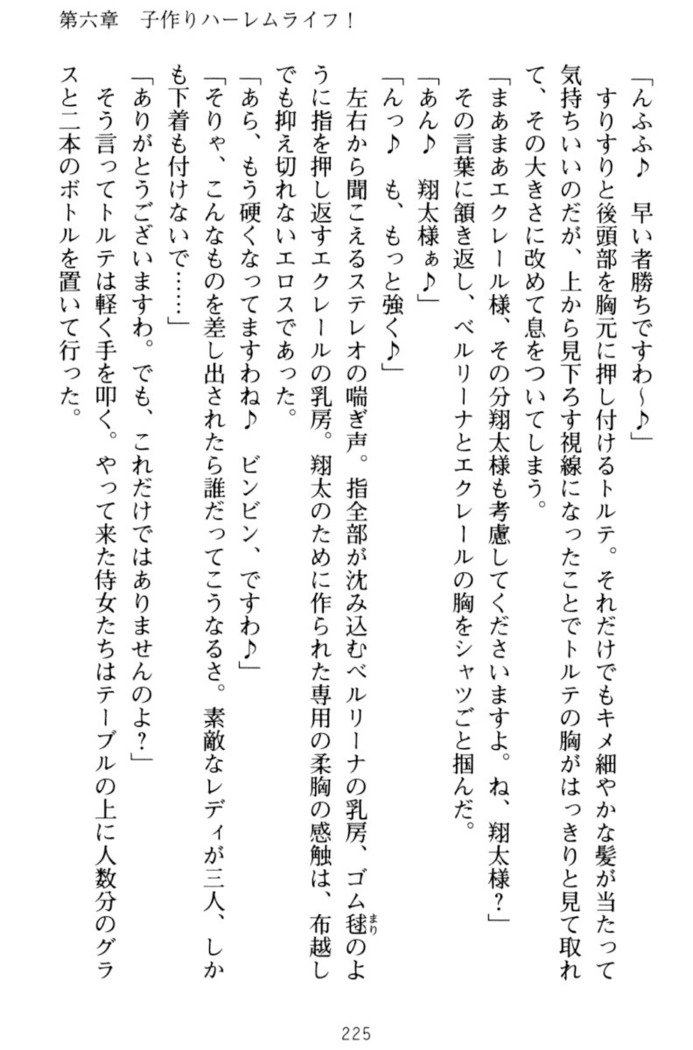 第六章　子作りハーレムライフ！
「んふふ♪　早い者勝ちですわ～♪」
　すりすりと後頭部を胸元に押し付けるトルテ。それだけでもキメ細やかな髪が当たって
気持ちいいのだが、上から見下ろす視線になったことでトルテの胸がはっきりと見て取れ
て、その大きさに改めて息をついてしまう。
「まあまあエクレール様、その分翔太様も考慮してくださいますよ。ね、翔太様？」
　その言葉に頷き返し、ベルリーナとエクレールの胸をシャツごと掴んだ。
「あん♪　翔太様ぁ♪」
「んっ♪　も、もっと強く♪」
　左右から聞こえるステレオの喘ぎ声。指全部が沈み込むベルリーナの乳房、ゴム毬のよ
うに指を押し返すエクレールの乳房。翔太のために作られた専用の柔胸の感触は、布越し
でも抑え切れないエロスであった。
「あら、もう硬くなってますわね♪　ビンビン、ですわ♪」
「そりゃ、こんなものを差し出されたら誰だってこうなるさ。素敵なレディが三人、しか
も下着も付けないで……」
「ありがとうございますわ。でも、これだけではありませんのよ？」
　そう言ってトルテは軽く手を叩く。やって来た侍女たちはテーブルの上に人数分のグラ
スと二本のボトルを置いて行った。
まり
225